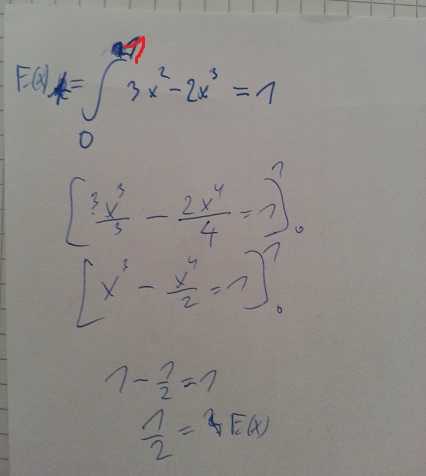 E(x) = ∫₀¹ 3x² - 2x³ = 1
[3x³/3 - 2x⁴/4 = 1]₀¹
[x³ - x⁴/2 = 1]₀¹
1 - 1/2 = 1
1/2 = E(x)